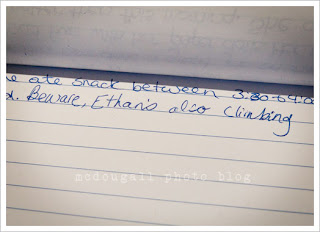 ate snack between 3:30-4:0
Beware, Ethan's also climbing
mcdougall photo blog